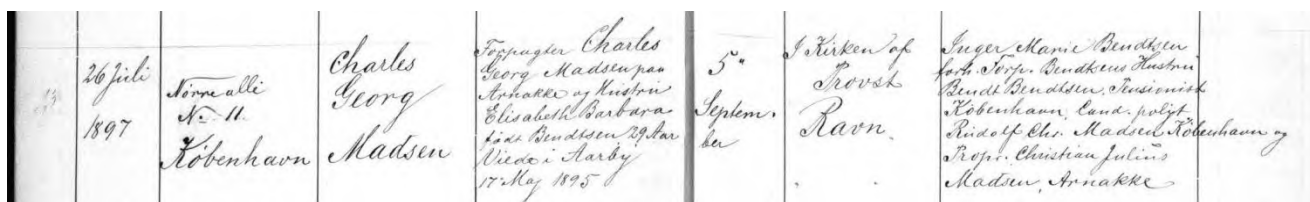 26 Juli
1897
Nørrealle
No 11.
København
Charles
Georg
Madsen
Forpagter Charles
Georg Madsen paa
Arnakke og Hustru
Elisabeth Barbara
født Bendtsen 29 Aar
Viede i Aarby
17 Maj 1895
5"
Septem-
ber
I Kirken af
Provst
Ravn.
Inger Marie Bendtsen
forh. Forp. Bendtsens Hustru
Bendt Bendtsen, Pensionist
København, Cand. polyt
Rudolf Chr. Madsen København og
Propr. Christian Julius
Madsen, Arnakke